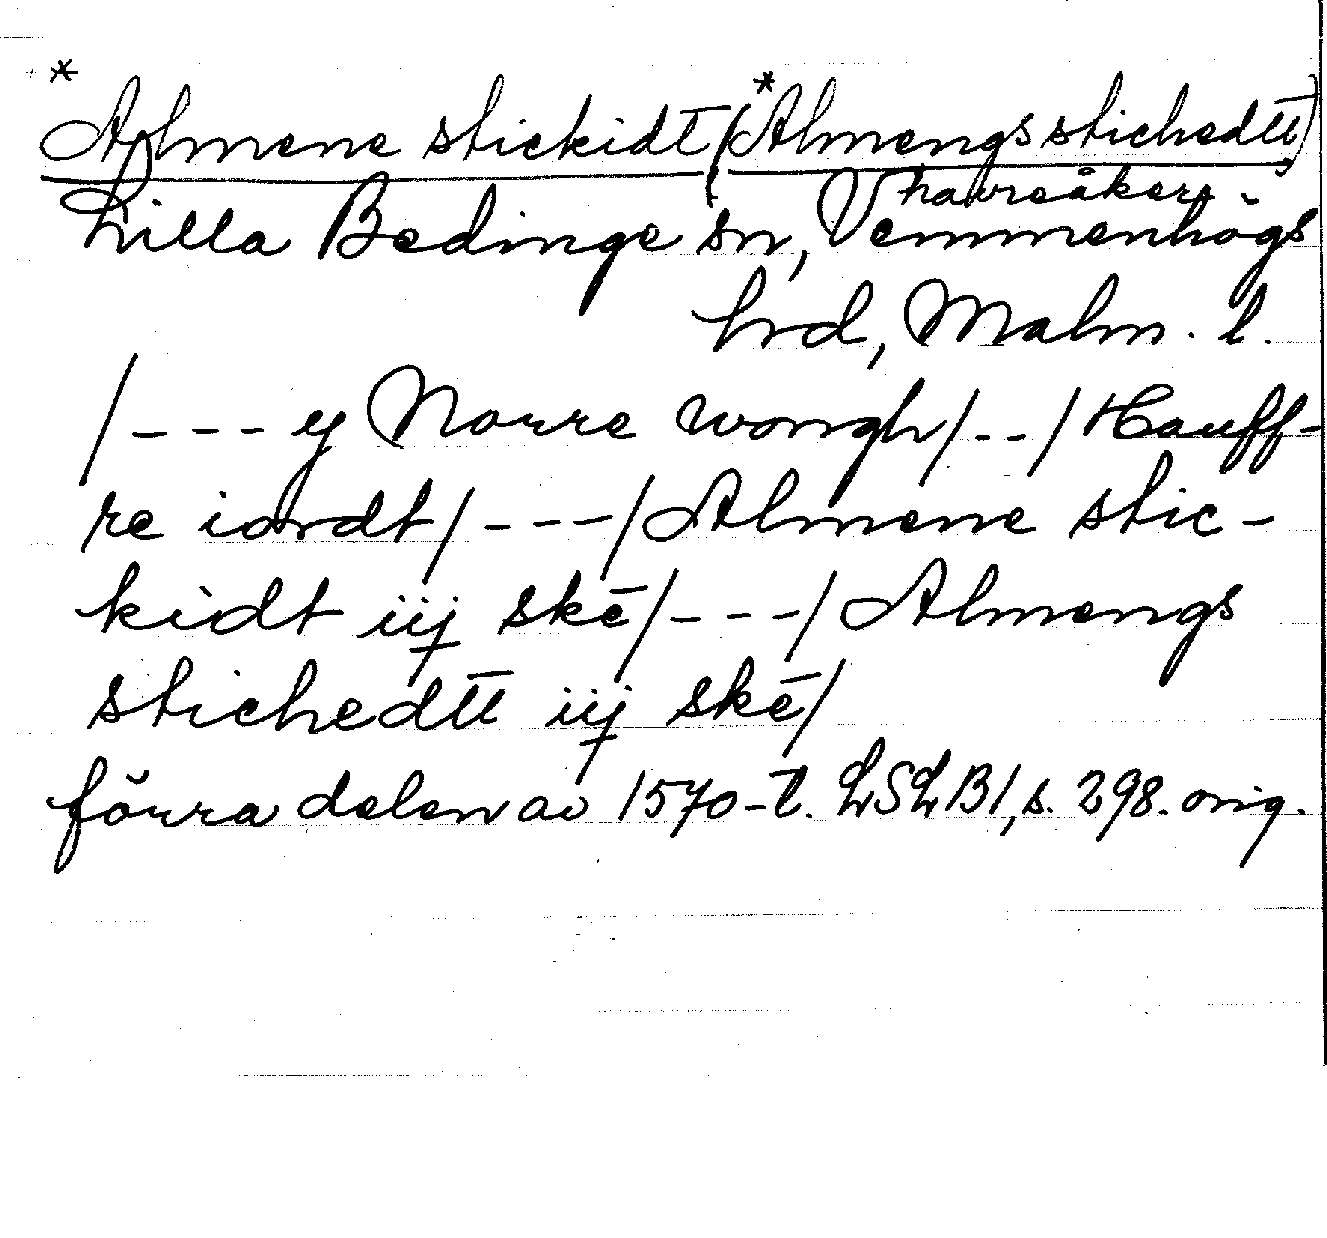 *Almene stickidt (*Almengs stichedtt)
havreåker,
Lilla Bedinge sn, Vemmenhögs
hrd, Malm. l.
/---y Norre wongh/--/Hauff-
re iordt/---/Almene stic-
kidt iij skē/---/Almengs
stichedtt iij skē/
förra delen av 1570-t. LSLB1, s. 298. orig.